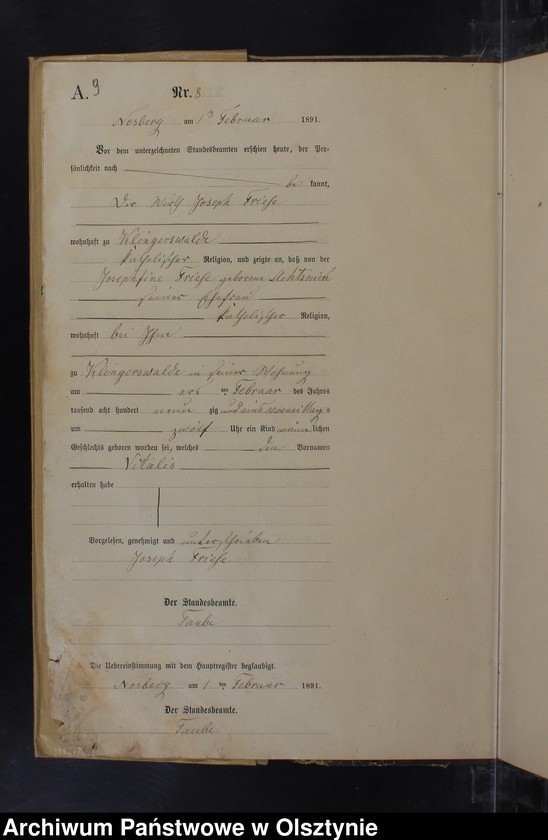 A. 9
Nr. 8
Nosberg am 1 Februar 1891.
Vor dem unterzeichneten Standesbeamten erschien heute, der Per-
sönlichkeit nach
be kannt,
Der Wirth Joseph Friese
wohnhaft zu Klingerswalde
katholischer Religion, und zeigte an, daß von der
Josephine Friese geborene
seiner Ehefrau
katholischer Religion,
wohnhaft bei Ihm
zu Klingerswalde in seiner Wohnung
am ers ten Februar des Jahres
tausend acht hundert neun zig und eins Vormittags
um zwölf Uhr ein Kind männlichen
Geschlechts geboren worden sei, welches den Vornamen
Vitalis
erhalten habe
Vorgelesen, genehmigt und unterschrieben
Joseph Friese
Der Standesbeamte.
Taube
Die Uebereinstimmung mit dem Hauptregister beglaubigt.
Nosberg am 1 ten Februar 1891.
Der Standesbeamte.
Taube
Archiwum Państwowe w Olsztynie